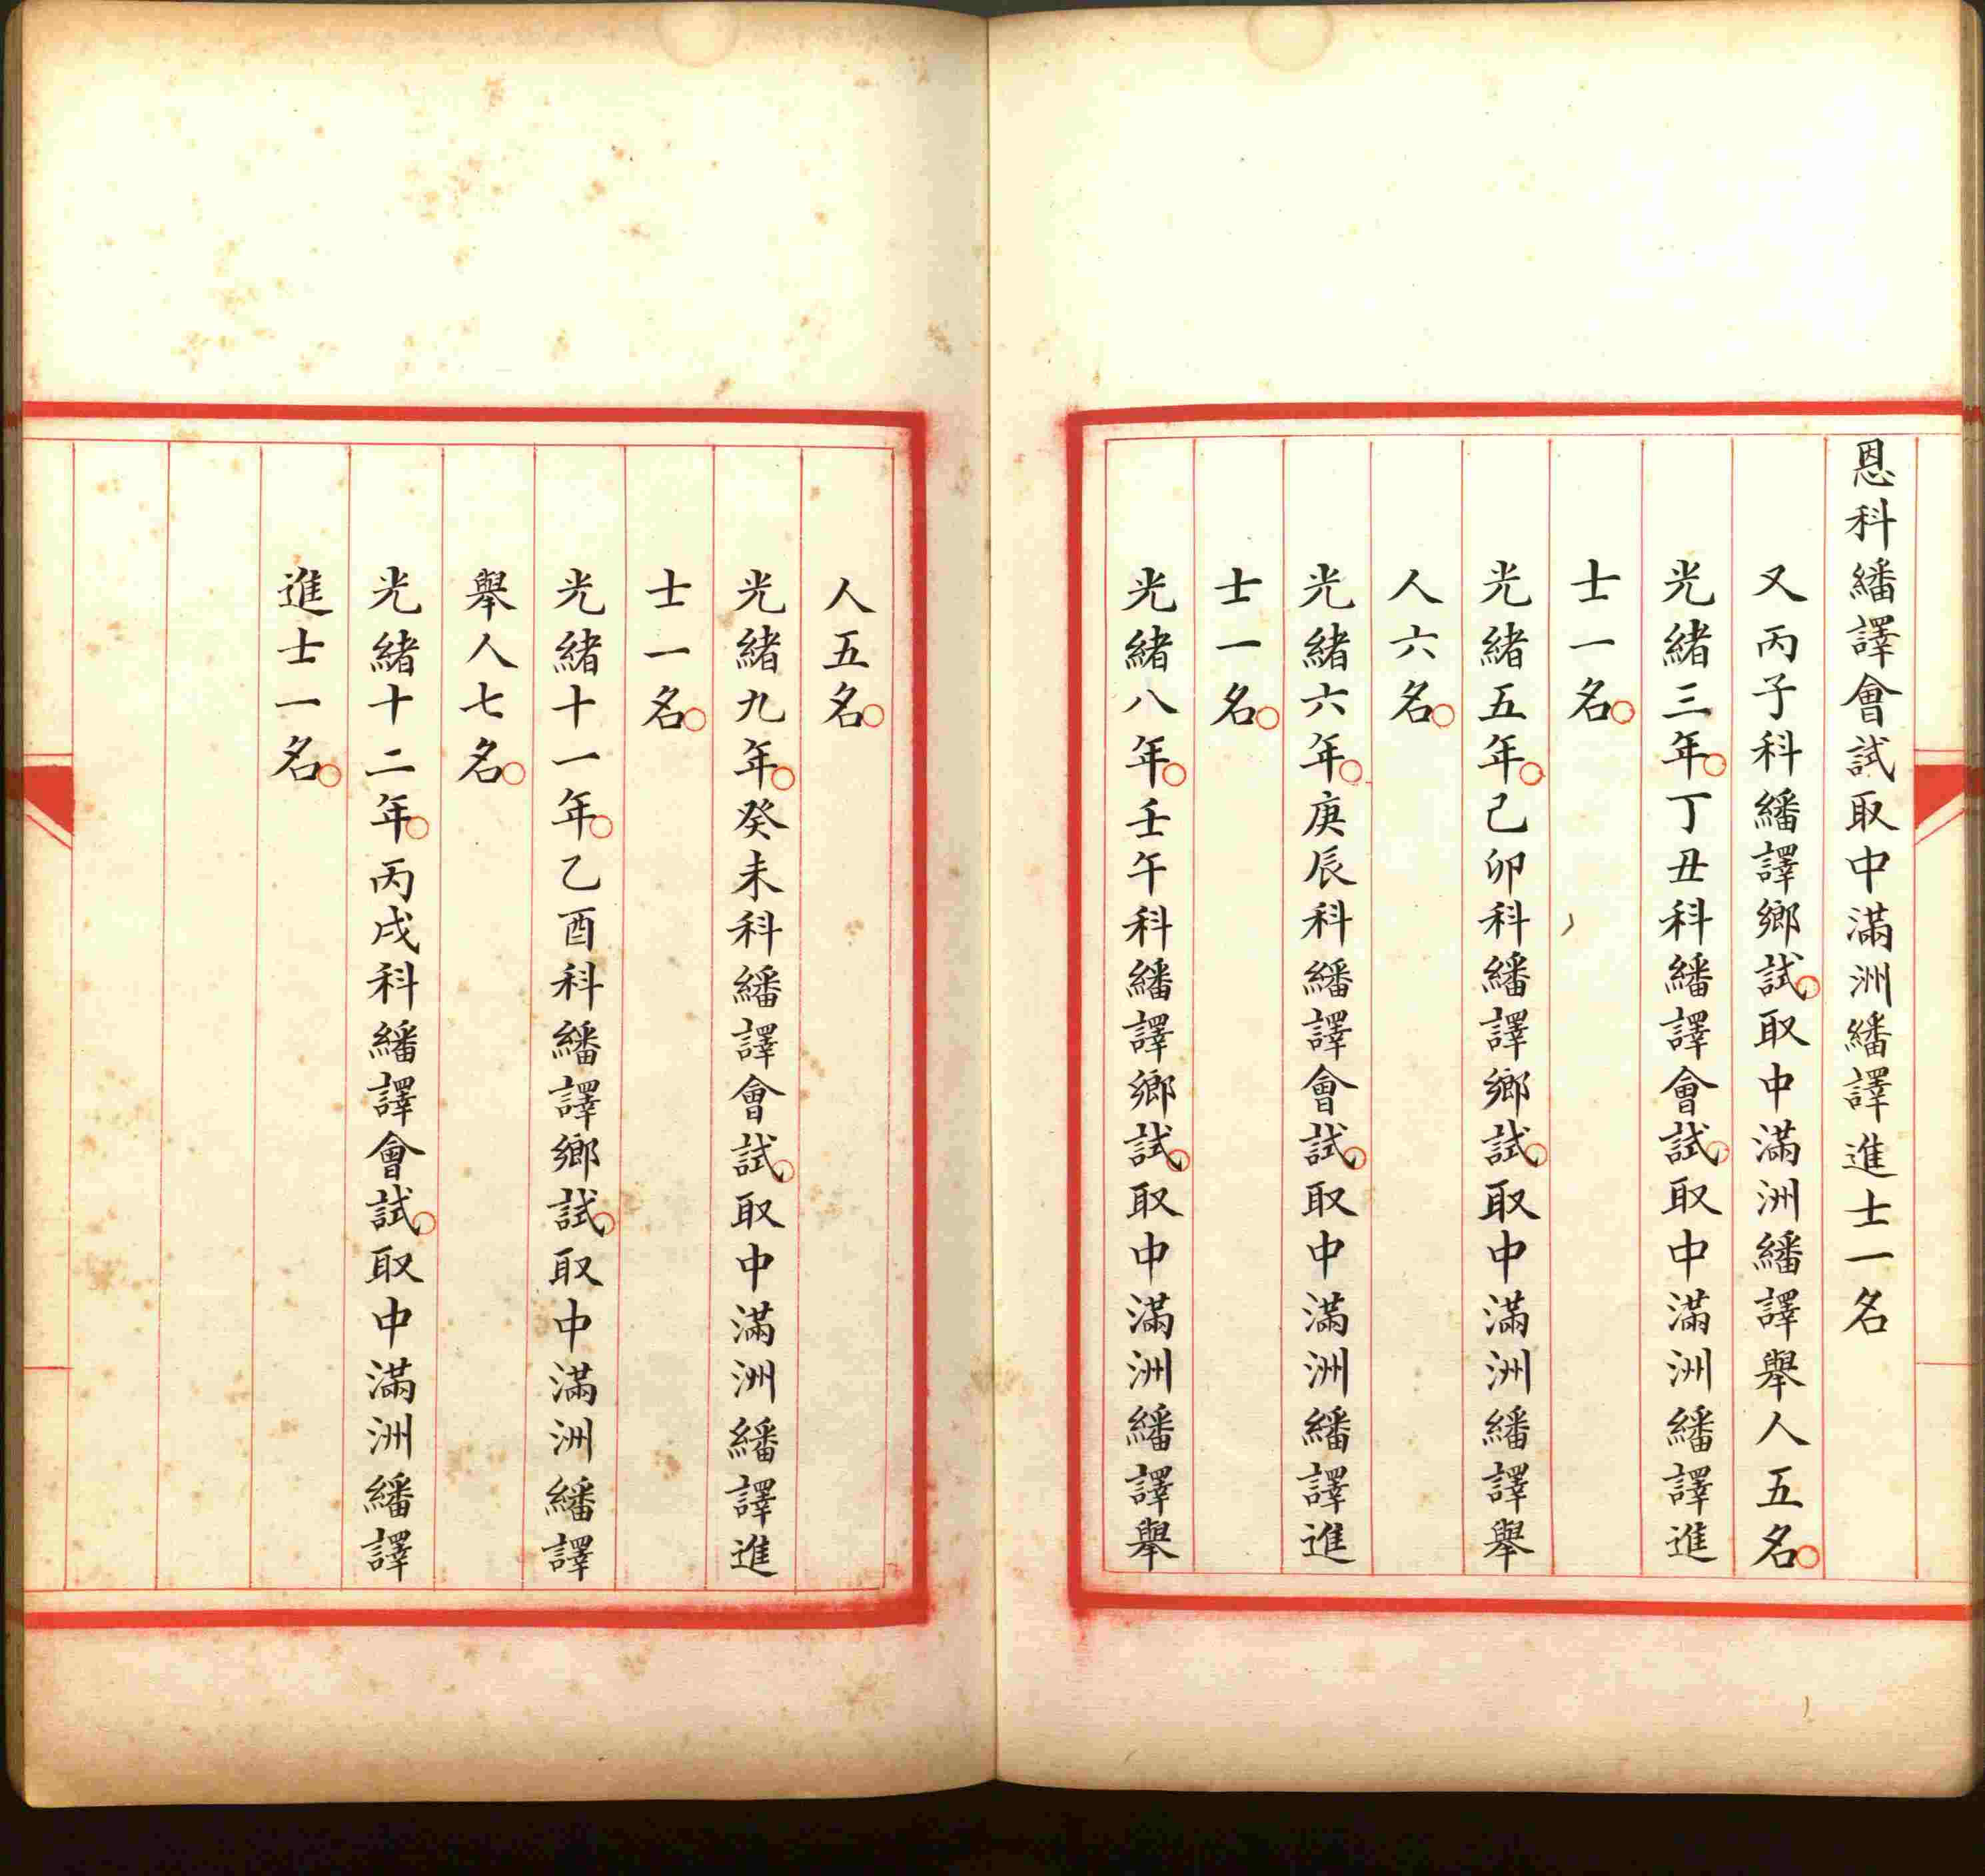 恩科繙譯會試取中滿洲繙譯進士一名
又丙子科繙譯鄉試。取中滿洲繙譯舉人五名。
光緒三年。丁丑科繙譯會試。取中滿洲繙譯進
士一名。
光緒五年。己卯科繙譯鄉試。取中滿洲繙譯舉
人六名。
光緒六年。庚辰科繙譯會試。取中滿洲繙譯進
士一名。
光緒八年。壬午科繙譯鄉試。取中滿洲繙譯舉
人五名。
光緒九年。癸未科繙譯會試。取中滿洲繙譯進
士一名。
光緒十一年。乙酉科繙譯鄉試。取中滿洲繙譯
舉人七名。
光緒十二年。丙戌科繙譯會試。取中滿洲繙譯
進士一名。